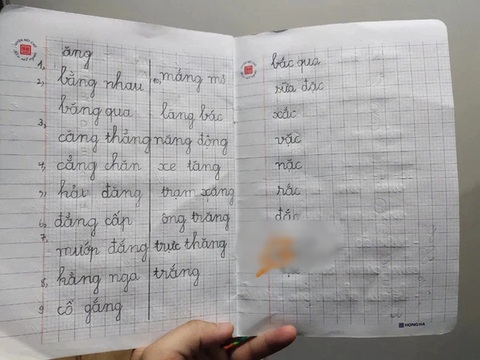 ăng
1,
2, bằng nhau 10, măng mô
băng qua làng bác
3, căng thẳng năng động
4, cẳng chân xe tăng
5, hải đăng trạm xăng
6, đẳng cấp ông trăng
7, mướp đắng trực thăng
8, hằng nga trắng
9 cố gắng
bắc qua
sữa đặc
xắc
vặc
nặc
rắc
HONG HA